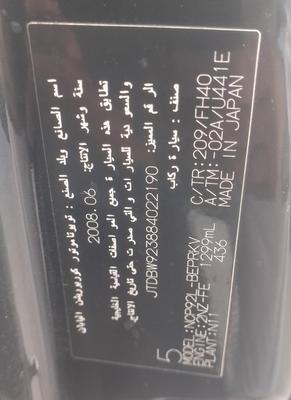 اسم الصانع وبلد الصنع : تويوتا موتور كوربوريشن اليابان
سنة وشهر الانتاج: 2008.06
تطابق هذه السيارة جميع المواصفات القياسية الخليجية
والسعودية للسيارات والتي صدرت حتى تاريخ الانتاج
الرقم المميز: JTDBW923884022190
صنف: سيارة ركاب
5
MODEL:NCP92L-BEPRKV C/TR:209/FH40
ENGINE:2NZ-FE 1299mL A/TM:-02A/U441E
PLANT:N11 436 MADE IN JAPAN